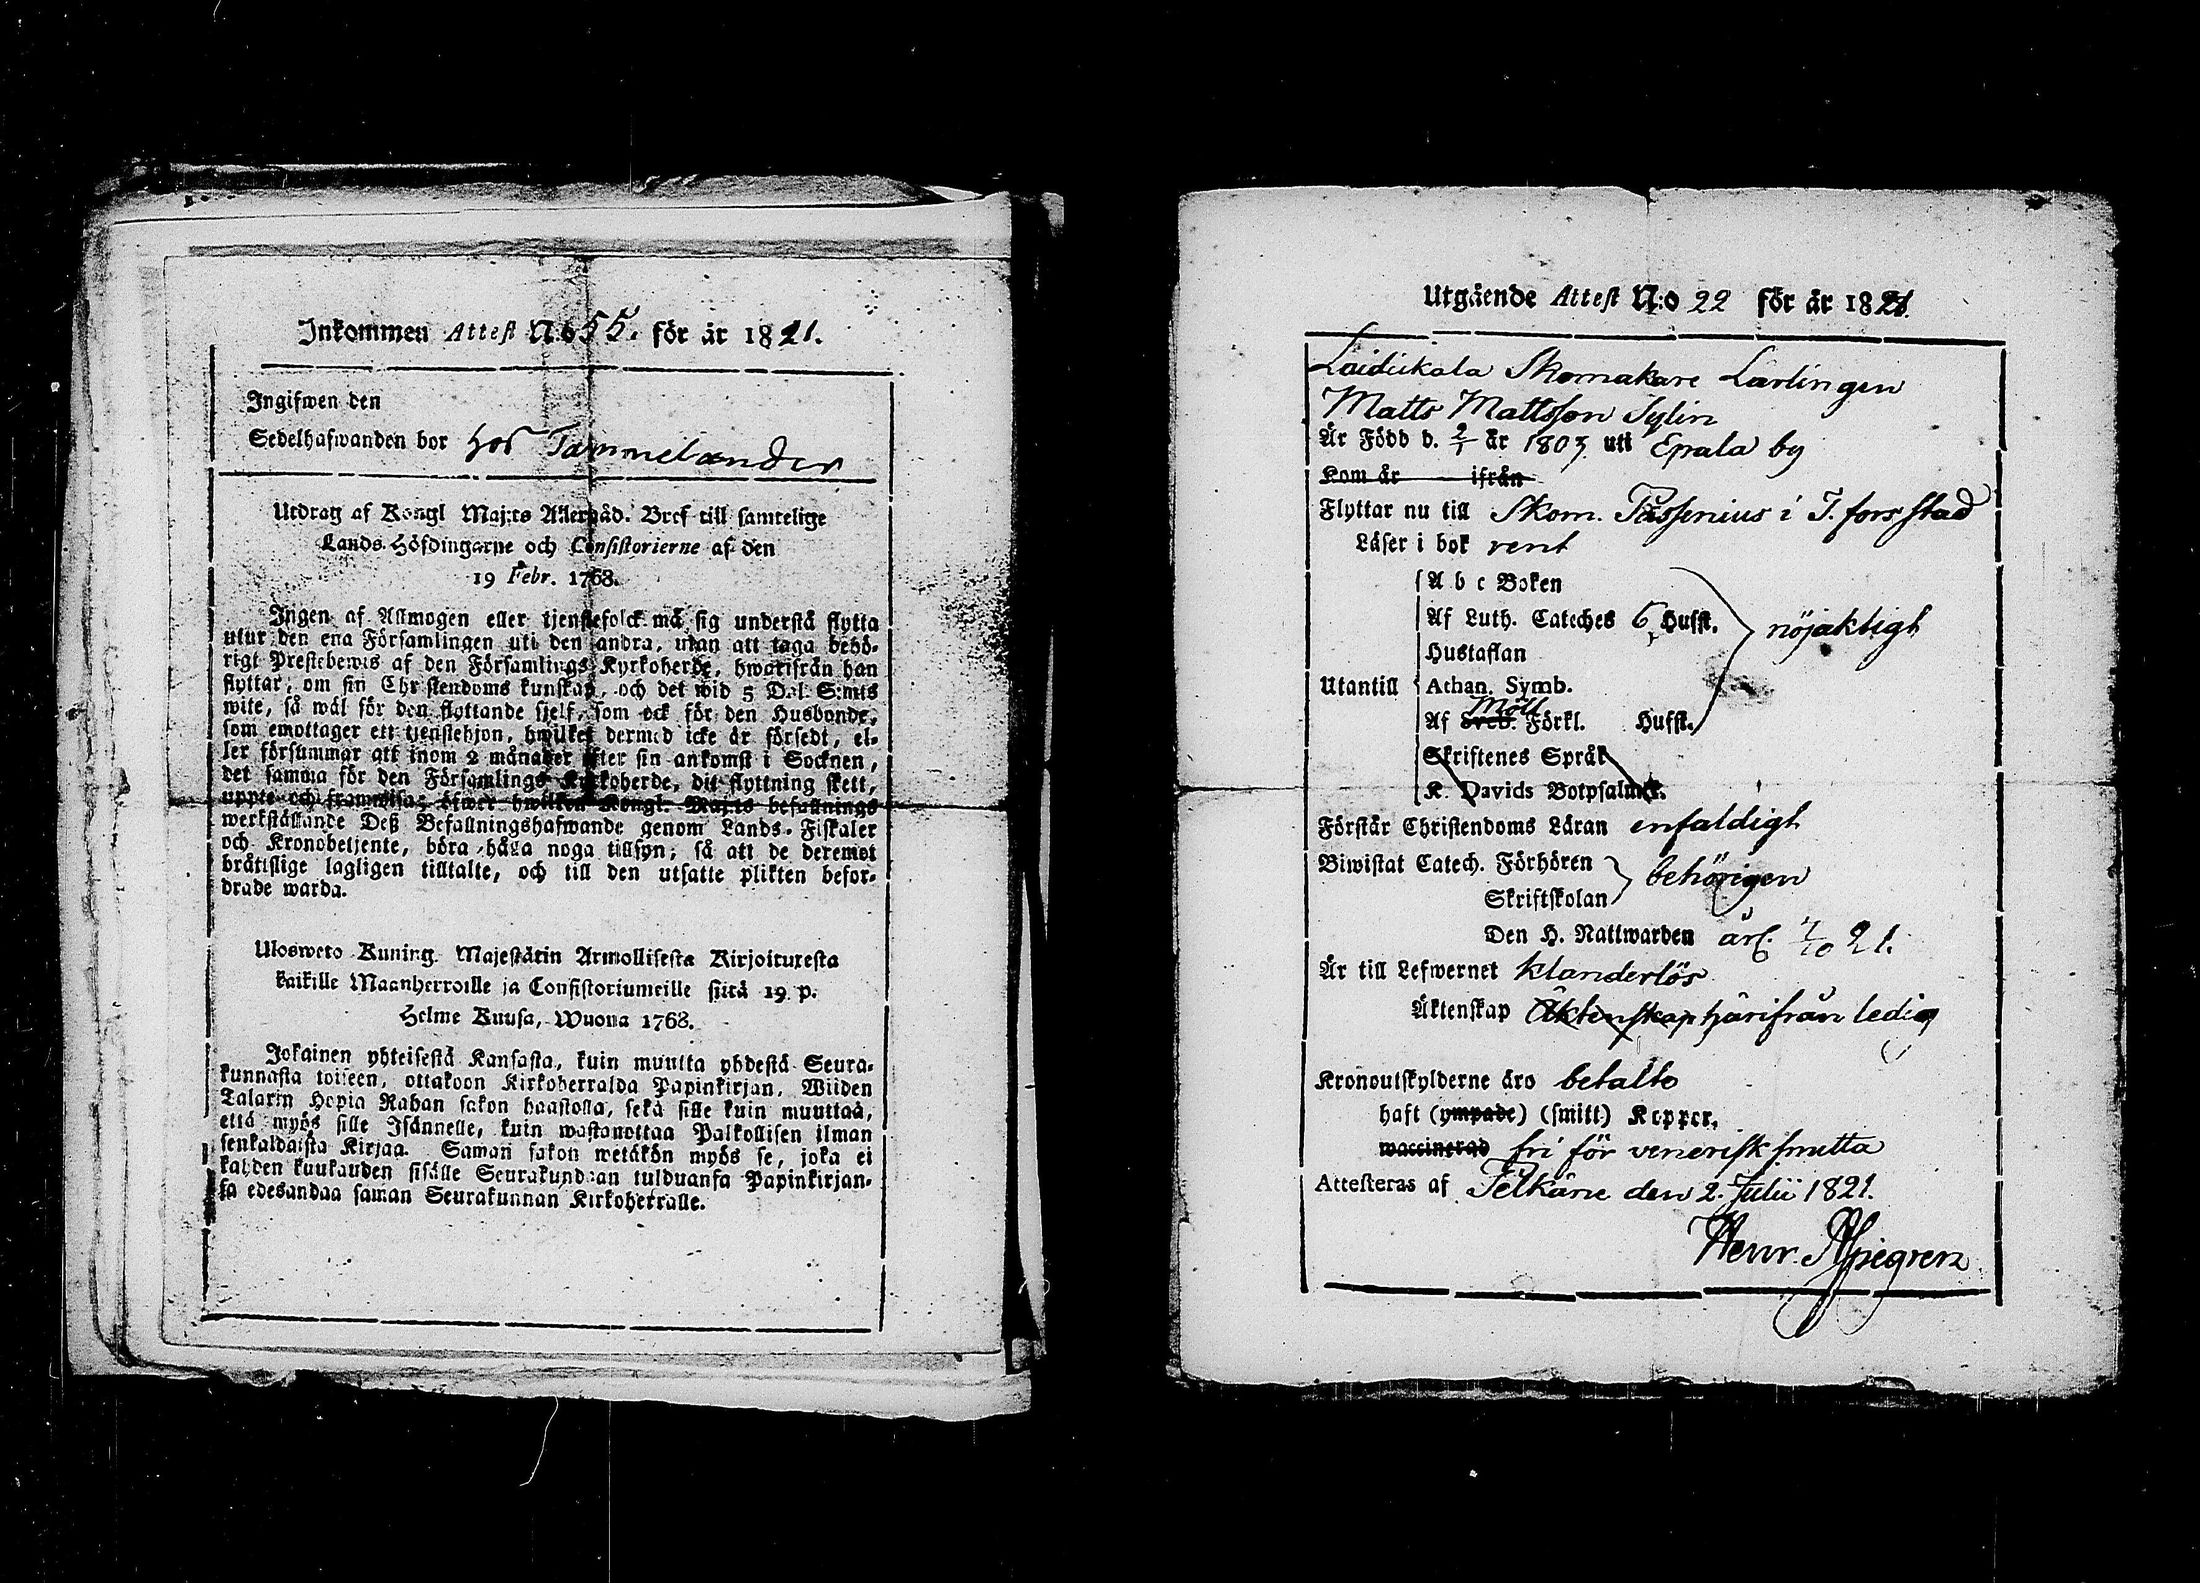 Inkommen Attest N:o 55. för år 1821.
Ingifwen den
Sedelhafwanden bor hos Tammelander
Utdrag af Kongl Maj:ts Allernåd. Bref till samtelige
Lands-Höfdingarne och Consistorierne af den
19 Febr. 1768.
Ingen af Allmogen eller tjenstefolck må sig understå flytta
utur den ena Församlingen uti den andra, utan att taga behö-
rigt Prestebewis af den Församlings Kyrkoherde, hwarifrån han
flyttar, om sin Christendoms kunskap, och det wid 5 Dal. S:mts
wite, så wäl för den flyttande sjelf, som ock för den Husbonde,
som emottager ett tjenstehjon, hwilket dermed icke är försedt, el-
ler försummar att inom 2 månader efter sin ankomst i Socknen,
det samma för den Församlings Kyrkoherde, dit flyttning skett,
uppte och framwisa; öfwer hwilken Kongl. Maj:ts befallnings
werkställande Deß Befallningshafwande genom Lands-Fiskaler
och Kronobetjente, böra hålla noga tillsyn; så att de deremot
bråttslige lagligen tilltalte, och till den utsatte plikten befor-
drade warda.
Ulosweto Kuning. Majestätin Armollisesta Kirjoituxesta
kaikille Maanherroille ja Consistoriumeille siitä 19 p.
Helme Kuusa, Wuona 1768.
Jokainen yhteisestä Kansasta, kuin muutta yhdestä Seura-
kunnasta toiseen, ottakoon Kirkoherralda Papinkirjan, Wiiden
Talarin Hopia Rahan sakon haastolla, sekä sille kuin muuttaa,
että myös sille Isännelle, kuin wastanottaa Palkollisen ilman
senkaldaista Kirjaa. Saman sakon wetäkön myös se, joka ei
kahden kuukauden sisälle Seurakundaan tulduansa Papinkirjan-
sa edesandaa saman Seurakunnan Kirkoherralle.
Utgående Attest N:o 22 för år 1821.
Laidikala Skomakare Lärlingen
Matts Mattsson Sylin
Är Född d. 2/1 år 1803 uti Epala by
Kom år ifrån
Flyttar nu till Skom. Passenius i T. fors stad
Läser i bok rent
A b c Boken
Af Luth. Cateches 6 Hufst. nöjaktigt
Hustaflan
Utantill Athan. Symb.
Möll
Af Sveb. Förkl. Hufst.
Skriftenes Språk
K. Davids Botpsalmer.
Förstår Christendoms Läran enfaldigt
Biwistat Catech. Förhören behörigen
Skriftskolan
Den H. Nattwarden 21.
Är till Lefwernet klanderlös
Äktenskap Äktenskap härifrån ledig
Kronoutskylderne äro betalte
haft (ympade) (smitt) Kopper.
waccinerad fri för venerisk smitta
Attesteras af Pelkäne den 2. Julii 1821.
Henr.